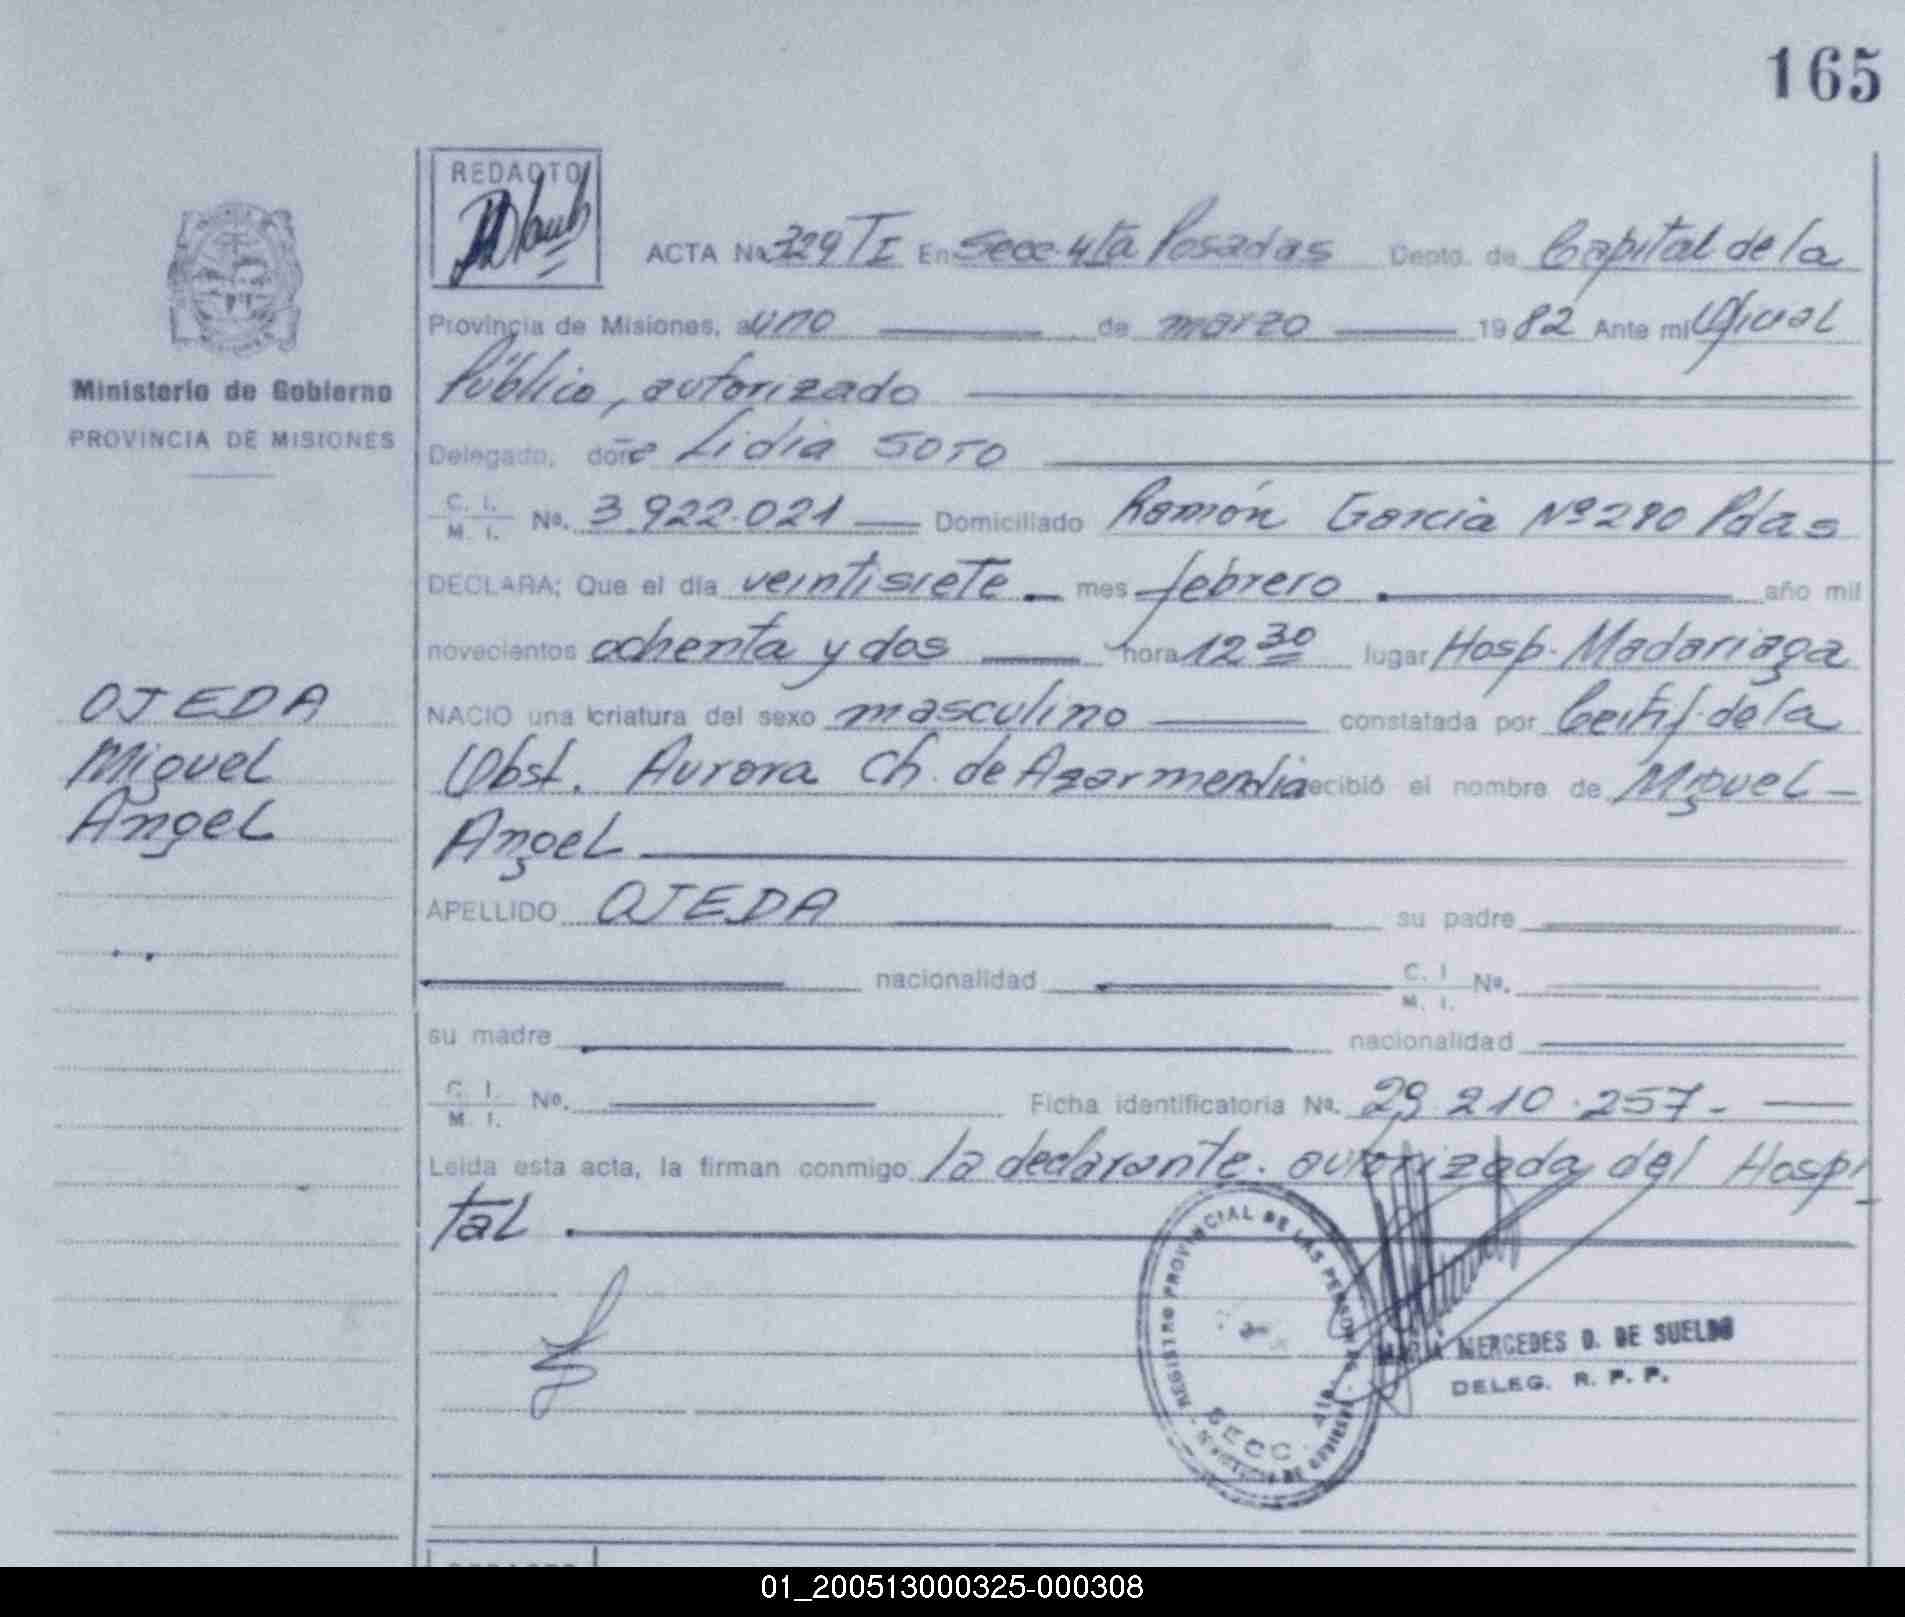 165
REDACTO
ACTA No 329 TI En Secc. 4ta Posadas Depto. de Capital de la
Provincia de Misiones, a uno de marzo 19 82 Ante mi Oficial
Ministerio de Gobierno
PROVINCIA DE MISIONES
Público, autorizado
Delegado, doña Lidia SOTO
C. I. M. I. No. 3.922.021 Domiciliado Ramón Garcia Nº 280 Pdas
DECLARA; Que el día veintisiete mes febrero año mil
novecientos ochenta y dos hora 12 30 lugar Hosp. Madariaga
OJEDA
Miguel
Angel
NACIO una criatura del sexo masculino constatada por Certif. de la
Obst. Aurora Ch. de Azarmendia recibió el nombre de Miguel
Angel
APELLIDO OJEDA su padre
nacionalidad C. I. M. I. No.
su madre nacionalidad
C. I. M. I. No. Ficha identificatoria No. 29.210.257.-
Leida esta acta, la firman conmigo la declarante. autorizada del Hospi
tal
REGISTRO PROVINCIAL DE LAS PERSONAS
SECC. 4ta
MARIA MERCEDES D. DE SUELDO
DELEG. R. P. P.
01_200513000325-000308